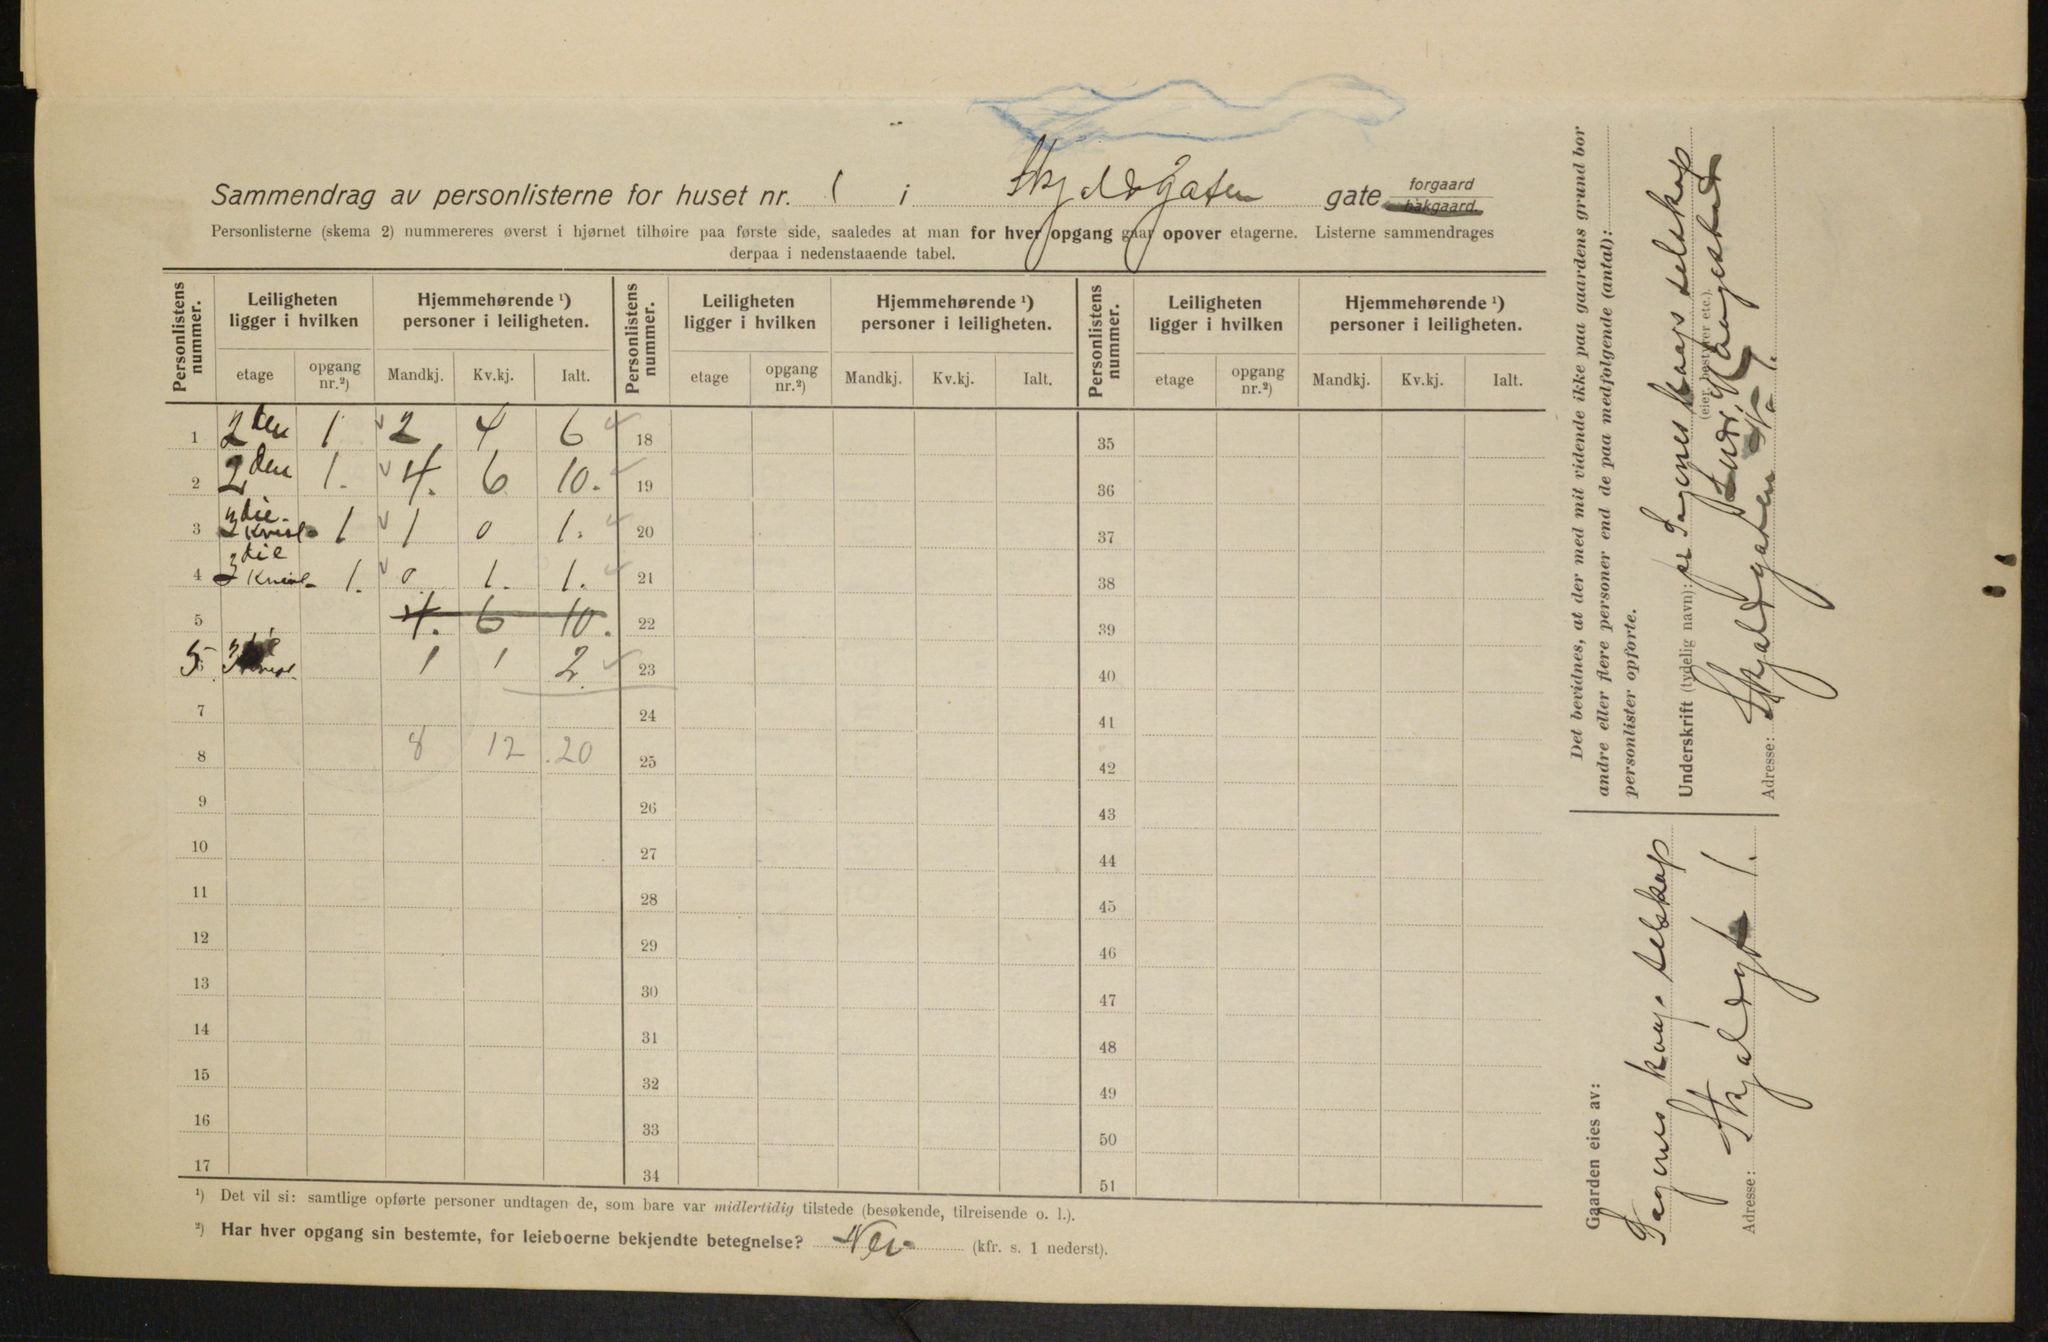 Sammendrag av personlisterne for huset nr. 1 i Skjaldsgaten gate forgaard bakgaard.
Personlisterne (skema 2) nummereres øverst i hjørnet tilhøire paa første side, saaledes at man for hver opgang gaar opover etagerne. Listerne sammendrages
derpaa i nedenstaaende tabel.
Personlistens nummer. Leiligheten ligger i hvilken Hjemmehørende ¹) personer i leiligheten. Personlistens nummer. Leiligheten ligger i hvilken Hjemmehørende ¹) personer i leiligheten. Personlistens nummer. Leiligheten ligger i hvilken Hjemmehørende ¹) personer i leiligheten.
etage opgang nr.²) Mandkj. Kv.kj. Ialt. etage opgang nr.²) Mandkj. Kv.kj. Ialt. etage opgang nr.²) Mandkj. Kv.kj. Ialt.
1 2den 1 2 4 6 18 35
2 2den 1. 4. 6 10. 19 36
3 3die Kvist 1 1 0 1. 20 37
4 3die Kvist 1. 0 1. 1. 21 38
5 4. 6 10. 22 39
5 3die Kvist. 1 1 2 23 40
7 24 41
8 8 12 20 25 42
9 26 43
10 27 44
11 28 45
12 29 46
13 30 47
14 31 48
15 32 49
16 33 50
17 34 51
¹) Det vil si: samtlige opførte personer undtagen de, som bare var midlertidig tilstede (besøkende, tilreisende o. l.).
²) Har hver opgang sin bestemte, for leieboerne bekjendte betegnelse? Nei (kfr. s. 1 nederst).
Det bevidnes, at der med mit vidende ikke paa gaardens grund bor
andre eller flere personer end de paa medfølgende (antal):
personlister opførte.
Underskrift (tydelig navn): Sagenes kaapsselskap
(eier, bestyrer etc.).
Adresse: Skjaldsgaten 1.
Gaarden eies av:
Sagenes kaapsselskap
Adresse: Skjaldsgt 1.